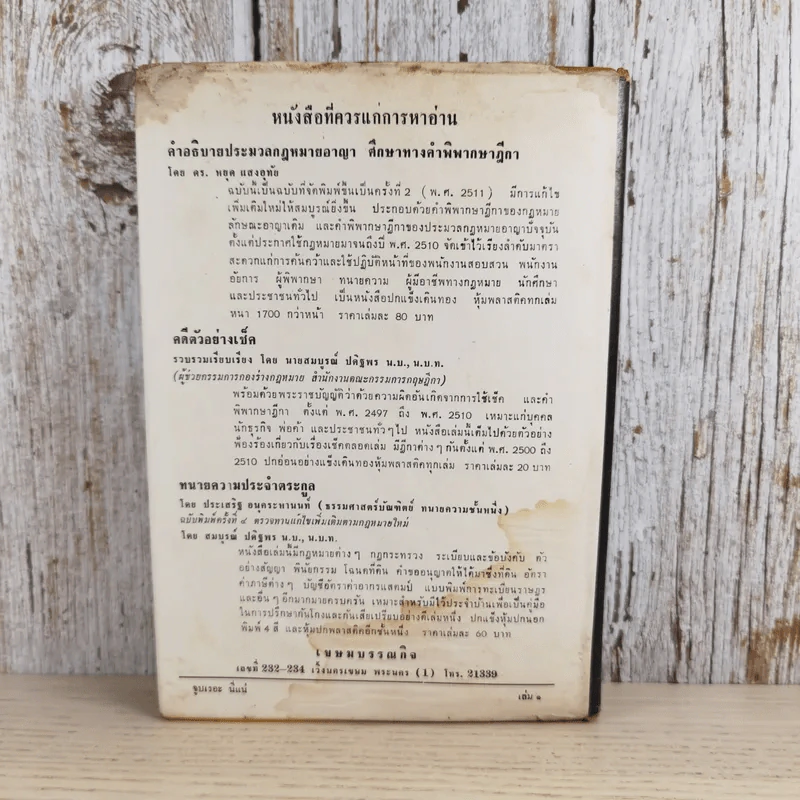 หนังสือที่ควรแก่การหาอ่าน
คำอธิบายประมวลกฎหมายอาญา ศึกษาทางคำพิพากษาฎีกา
โดย ดร. หยุด แสงอุทัย
ฉบับนี้เป็นฉบับที่จัดพิมพ์ขึ้นเป็นครั้งที่ 2 (พ.ศ. 2511) มีการแก้ไข
เพิ่มเติมใหม่ให้สมบูรณ์ยิ่งขึ้น ประกอบด้วยคำพิพากษาฎีกาของกฎหมาย
ลักษณะอาญาเดิม และคำพิพากษาฎีกาของประมวลกฎหมายอาญาปัจจุบัน
ตั้งแต่ประกาศใช้กฎหมายมาจนถึงปี พ.ศ. 2510 จัดเข้าไว้เรียงลำดับมาตรา
สะดวกแก่การค้นคว้าและใช้ปฏิบัติหน้าที่ของพนักงานสอบสวน พนักงาน
อัยการ ผู้พิพากษา ทนายความ ผู้มีอาชีพทางกฎหมาย นักศึกษา
และประชาชนทั่วไป เป็นหนังสือปกแข็งเดินทอง หุ้มพลาสติคทุกเล่ม
หนา 1700 กว่าหน้า ราคาเล่มละ 80 บาท
คดีตัวอย่างเช็ค
รวบรวมเรียบเรียง โดย นายสมบูรณ์ ปดิฐพร น.บ., น.บ.ท.
(ผู้ช่วยกรรมการกองร่างกฎหมาย สำนักงานคณะกรรมการกฤษฎีกา)
พร้อมด้วยพระราชบัญญัติว่าด้วยความผิดอันเกิดจากการใช้เช็ค และคำ
พิพากษาฎีกา ตั้งแต่ พ.ศ. 2497 ถึง พ.ศ. 2510 เหมาะแก่บุคคล
นักธุรกิจ พ่อค้า และประชาชนทั่วๆไป หนังสือเล่มนี้เต็มไปด้วยตัวอย่าง
ฟ้องร้องเกี่ยวกับเรื่องเช็คตลอดเล่ม มีฎีกาต่างๆ กันตั้งแต่ พ.ศ. 2500 ถึง
2510 ปกอ่อนอย่างแข็งเดินทองหุ้มพลาสติคทุกเล่ม ราคาเล่มละ 20 บาท
ทนายความประจำตระกูล
โดย ประเสริฐ อนุตระหานนท์ (ธรรมศาสตร์บัณฑิตย์ ทนายความชั้นหนึ่ง)
ฉบับพิมพ์ครั้งที่ ๔ ตรวจทานแก้ไขเพิ่มเติมตามกฎหมายใหม่
โดย สมบูรณ์ ปดิฐพร น.บ., น.บ.ท.
หนังสือเล่มนี้มีกฎหมายต่างๆ กฎกระทรวง ระเบียบและข้อบังคับ ตัว
อย่างสัญญา พินัยกรรม โฉนดที่ดิน คำขออนุญาตให้ได้มาซึ่งที่ดิน อัตรา
ค่าภาษีต่างๆ บัญชีอัตราค่าอากรแสตมป์ แบบพิมพ์การทะเบียนราษฎร
และอื่นๆ อีกมากมายครบครัน เหมาะสำหรับมีไว้ประจำบ้านเพื่อเป็นคู่มือ
ในการปรึกษากันโกงและกันเสียเปรียบอย่างดีเล่มหนึ่ง ปกแข็งหุ้มปกนอก
พิมพ์ 4 สี และหุ้มปกพลาสติคอีกชั้นหนึ่ง ราคาเล่มละ 60 บาท
เขษมบรรณกิจ
เลขที่ 232-234 เวิ้งนครเขษม พระนคร (1) โทร. 21339
จูบเรอะ นี่แน่ เล่ม ๑